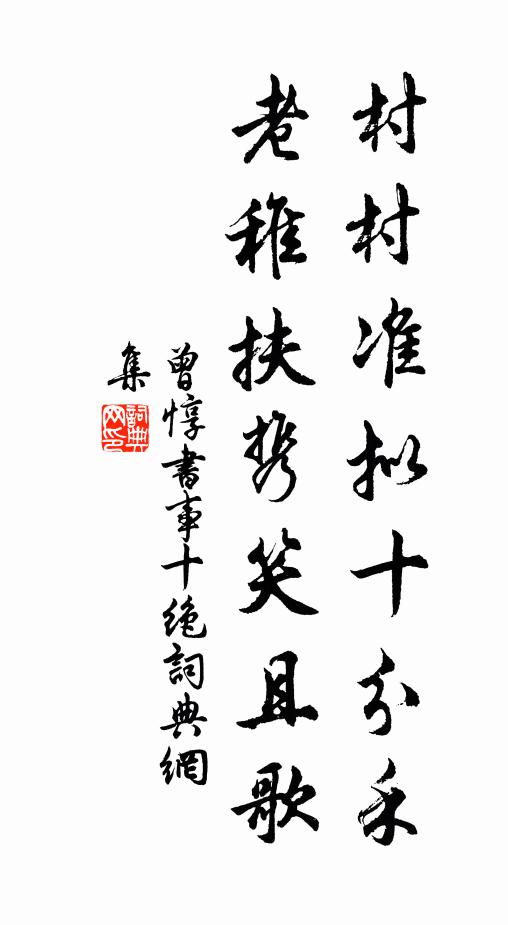 村村准拟十分禾
老稚扶携笑且歌
曾惇書事十絶詞典網
集
詞典网印